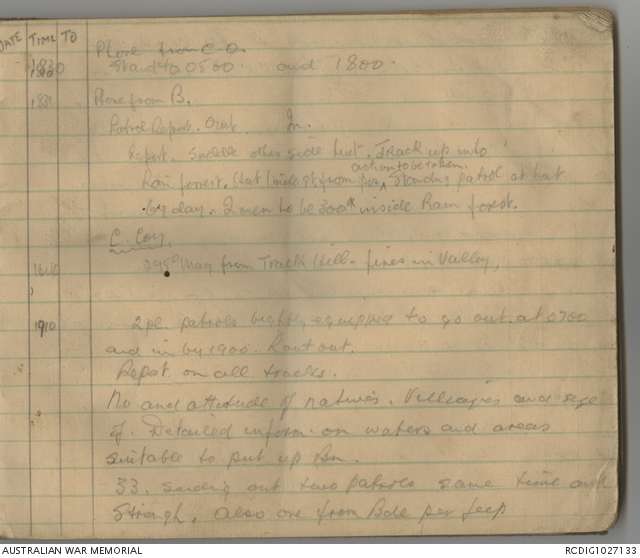 DATE TIME TO
Phone from C.O.
1830 Stand to 0500. and 1800.
1831 Phone from B.
Patrol Report. Out. In.
Report. Saddle other side hut. Track up into
action to be taken.
Rain forest. Hut from Standing patrol at hut
by day. 2 men to be 300x inside Rain forest.
C. Coy.
295° Mag from Track Hill - fires in Valley,
1910 2 pl. patrols lightly equipped to go out at 0700
and in by 1900. Rout out.
Report on all tracks.
No and attitude of natives. Villages and size
of. Detailed inform. on waters and areas
suitable to put up Bn.
33. sending out two patrols same time and
strength, also one from Bde per Jeep
AUSTRALIAN WAR MEMORIAL
RCDIG1027133